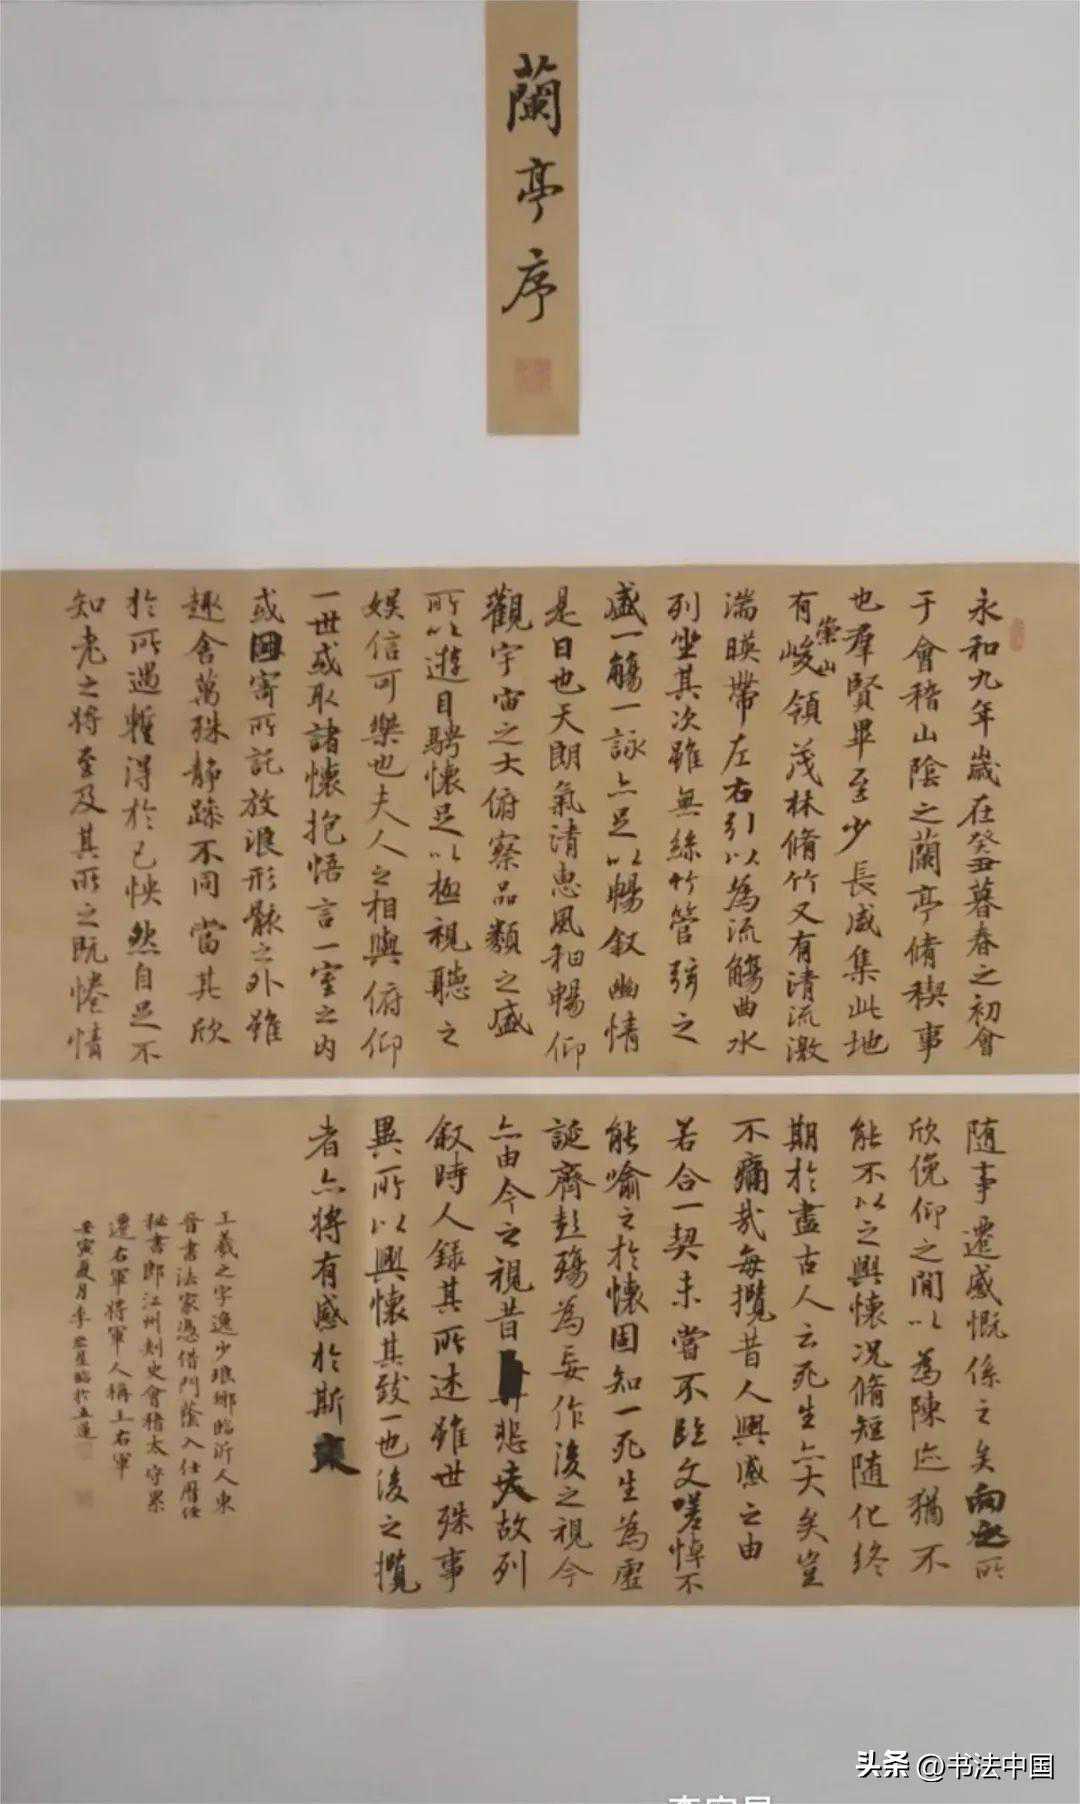 蘭亭序
永和九年歲在癸丑暮春之初會
于會稽山陰之蘭亭脩稧事
也羣賢畢至少長咸集此地
有崇山峻領茂林脩竹又有清流激
湍暎帶左右引以為流觴曲水
列坐其次雖無絲竹管弦之
盛一觴一詠亦足以暢敘幽情
是日也天朗氣清惠風和暢仰
觀宇宙之大俯察品類之盛
所以遊目騁懷足以極視聽之
娛信可樂也夫人之相與俯仰
一世或取諸懷抱悟言一室之內
或因寄所託放浪形骸之外雖
趣舍萬殊靜躁不同當其欣
於所遇暫得於己怏然自足不
知老之將至及其所之既惓情
隨事遷感慨係之矣向之所
欣俛仰之閒以為陳迹猶不
能不以之興懷況脩短隨化終
期於盡古人云死生亦大矣豈
不痛哉每攬昔人興感之由
若合一契未嘗不臨文嗟悼不
能喻之於懷固知一死生為虛
誕齊彭殤為妄作後之視今
亦由今之視昔悲夫故列
敘時人錄其所述雖世殊事
異所以興懷其致一也後之攬
者亦將有感於斯文
王羲之字逸少琅琊臨沂人東
晉書法家憑借門蔭入仕曆任
秘書郎江州刺史會稽太守累
遷右軍將軍人稱王右軍
壬寅夏月李臨於
头条 @书法中国